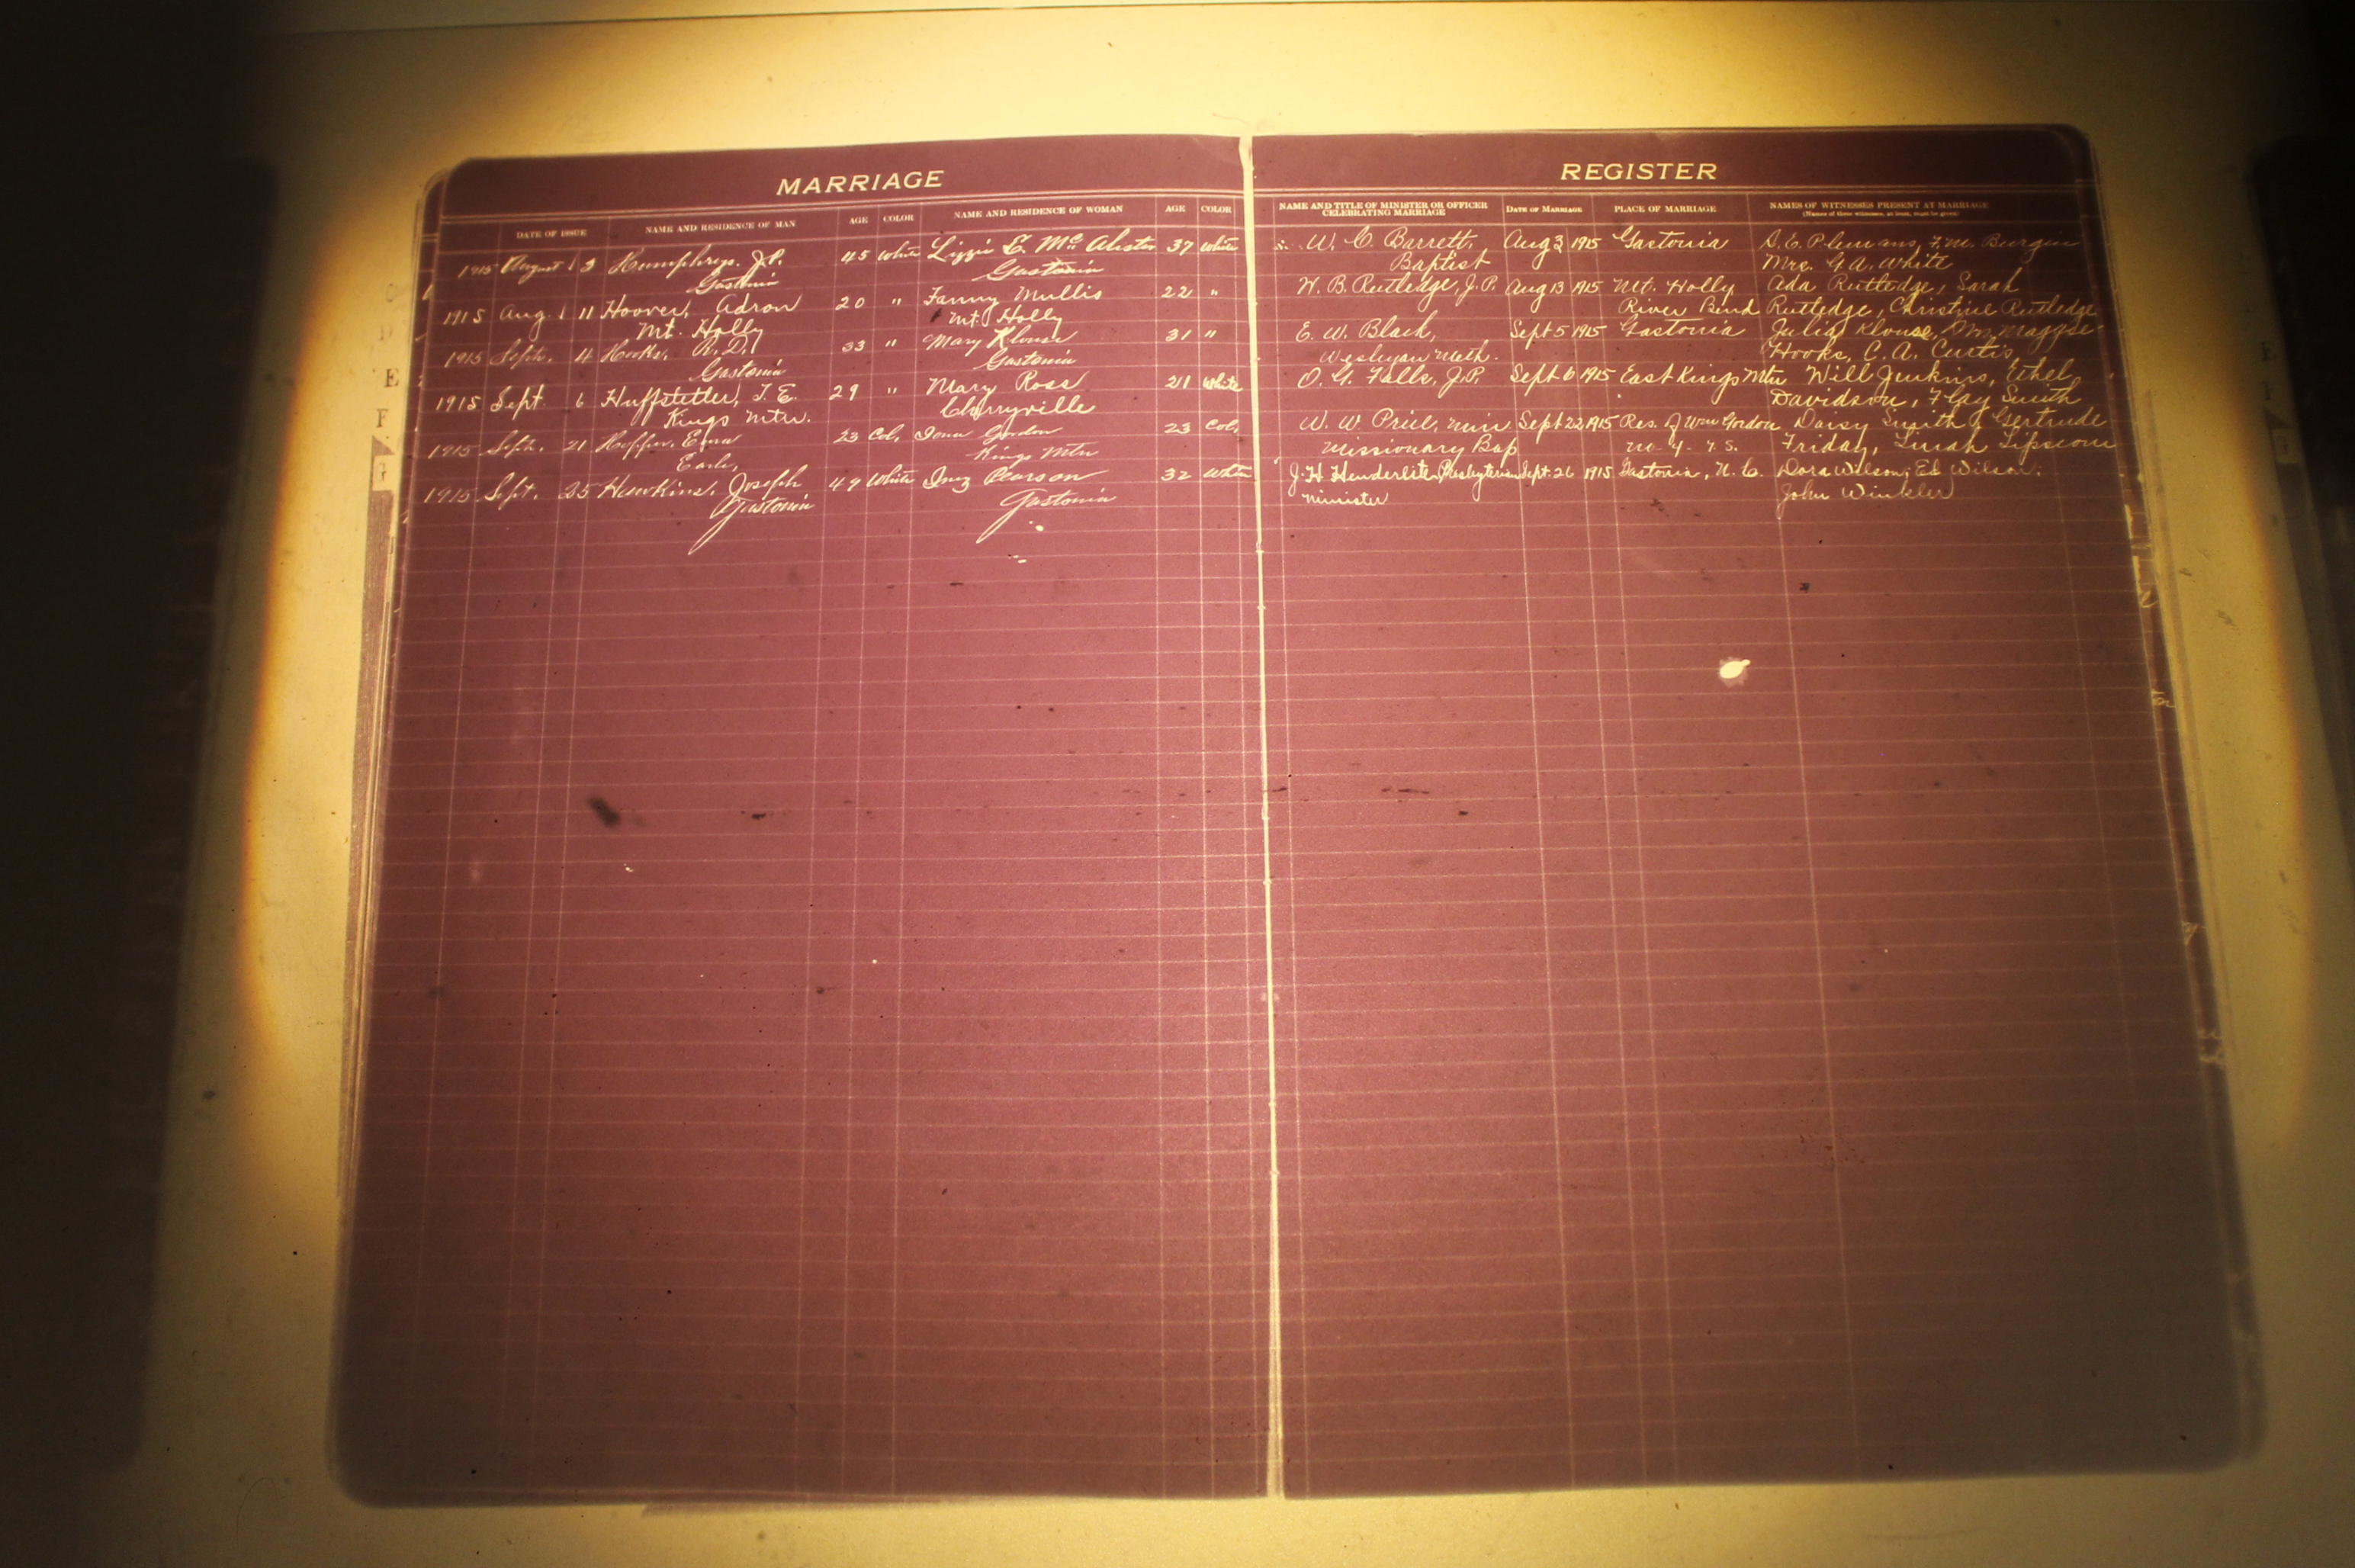 MARRIAGE
DATE OF ISSUE NAME AND RESIDENCE OF MAN AGE COLOR NAME AND RESIDENCE OF WOMAN AGE COLOR
1915 August 3 Humphries. J.P. 45 White Lizzie E. Mc Alister 37 White
Gastonia Gastonia
1915 Aug. 11 Hoover, Adron 20 " Fanny Mullis 22 "
Mt. Holly Mt. Holly
1915 Sept. 4 Hooks, R.D. 33 " Mary Klouse 31 "
Gastonia Gastonia
1915 Sept. 6 Huffstetler, T.E. 29 " Mary Ross 21 White
Kings Mtn. Cherryville
1915 Sept. 21 Hopper, 23 Col. Iona Gordon 23 Col.
Earls, Kings Mtn
1915 Sept. 25 Hawkins, Joseph 49 White Inez Pearson 32 White
Gastonia Gastonia
REGISTER
NAME AND TITLE OF MINISTER OR OFFICER CELEBRATING MARRIAGE DATE OF MARRIAGE PLACE OF MARRIAGE NAMES OF WITNESSES PRESENT AT MARRIAGE
(Names of three witnesses, at least, must be given)
W. C. Barrett, Aug 3 1915 Gastonia S. E. Plemans, F.M. Burgin
Baptist Mrs. G. A. White
W. B. Rutledge, J.P. Aug 13 1915 Mt. Holly Ada Rutledge, Sarah
River Bend Rutledge, Christine Rutledge
E. W. Black, Sept 5 1915 Gastonia Julia Klouse, Maggie
Wesleyan Meth. Hooks, C. A. Curtis
O. G. Falls, J.P. Sept 6 1915 East Kings Mtn Will Jenkins, Ethel
Davidson, Flay Smith
W. W. Price, min Sept 22 1915 Res. of Wm Gordon Daisy Smith, Gertrude
Missionary Bap No. 4. T.S. Friday, Lipscom
J. H. Henderlite, Presbyterian Sept. 26 1915 Gastonia, N. C. Dora Wilson; Ed Wilson;
Minister John Winkler
E
F
G